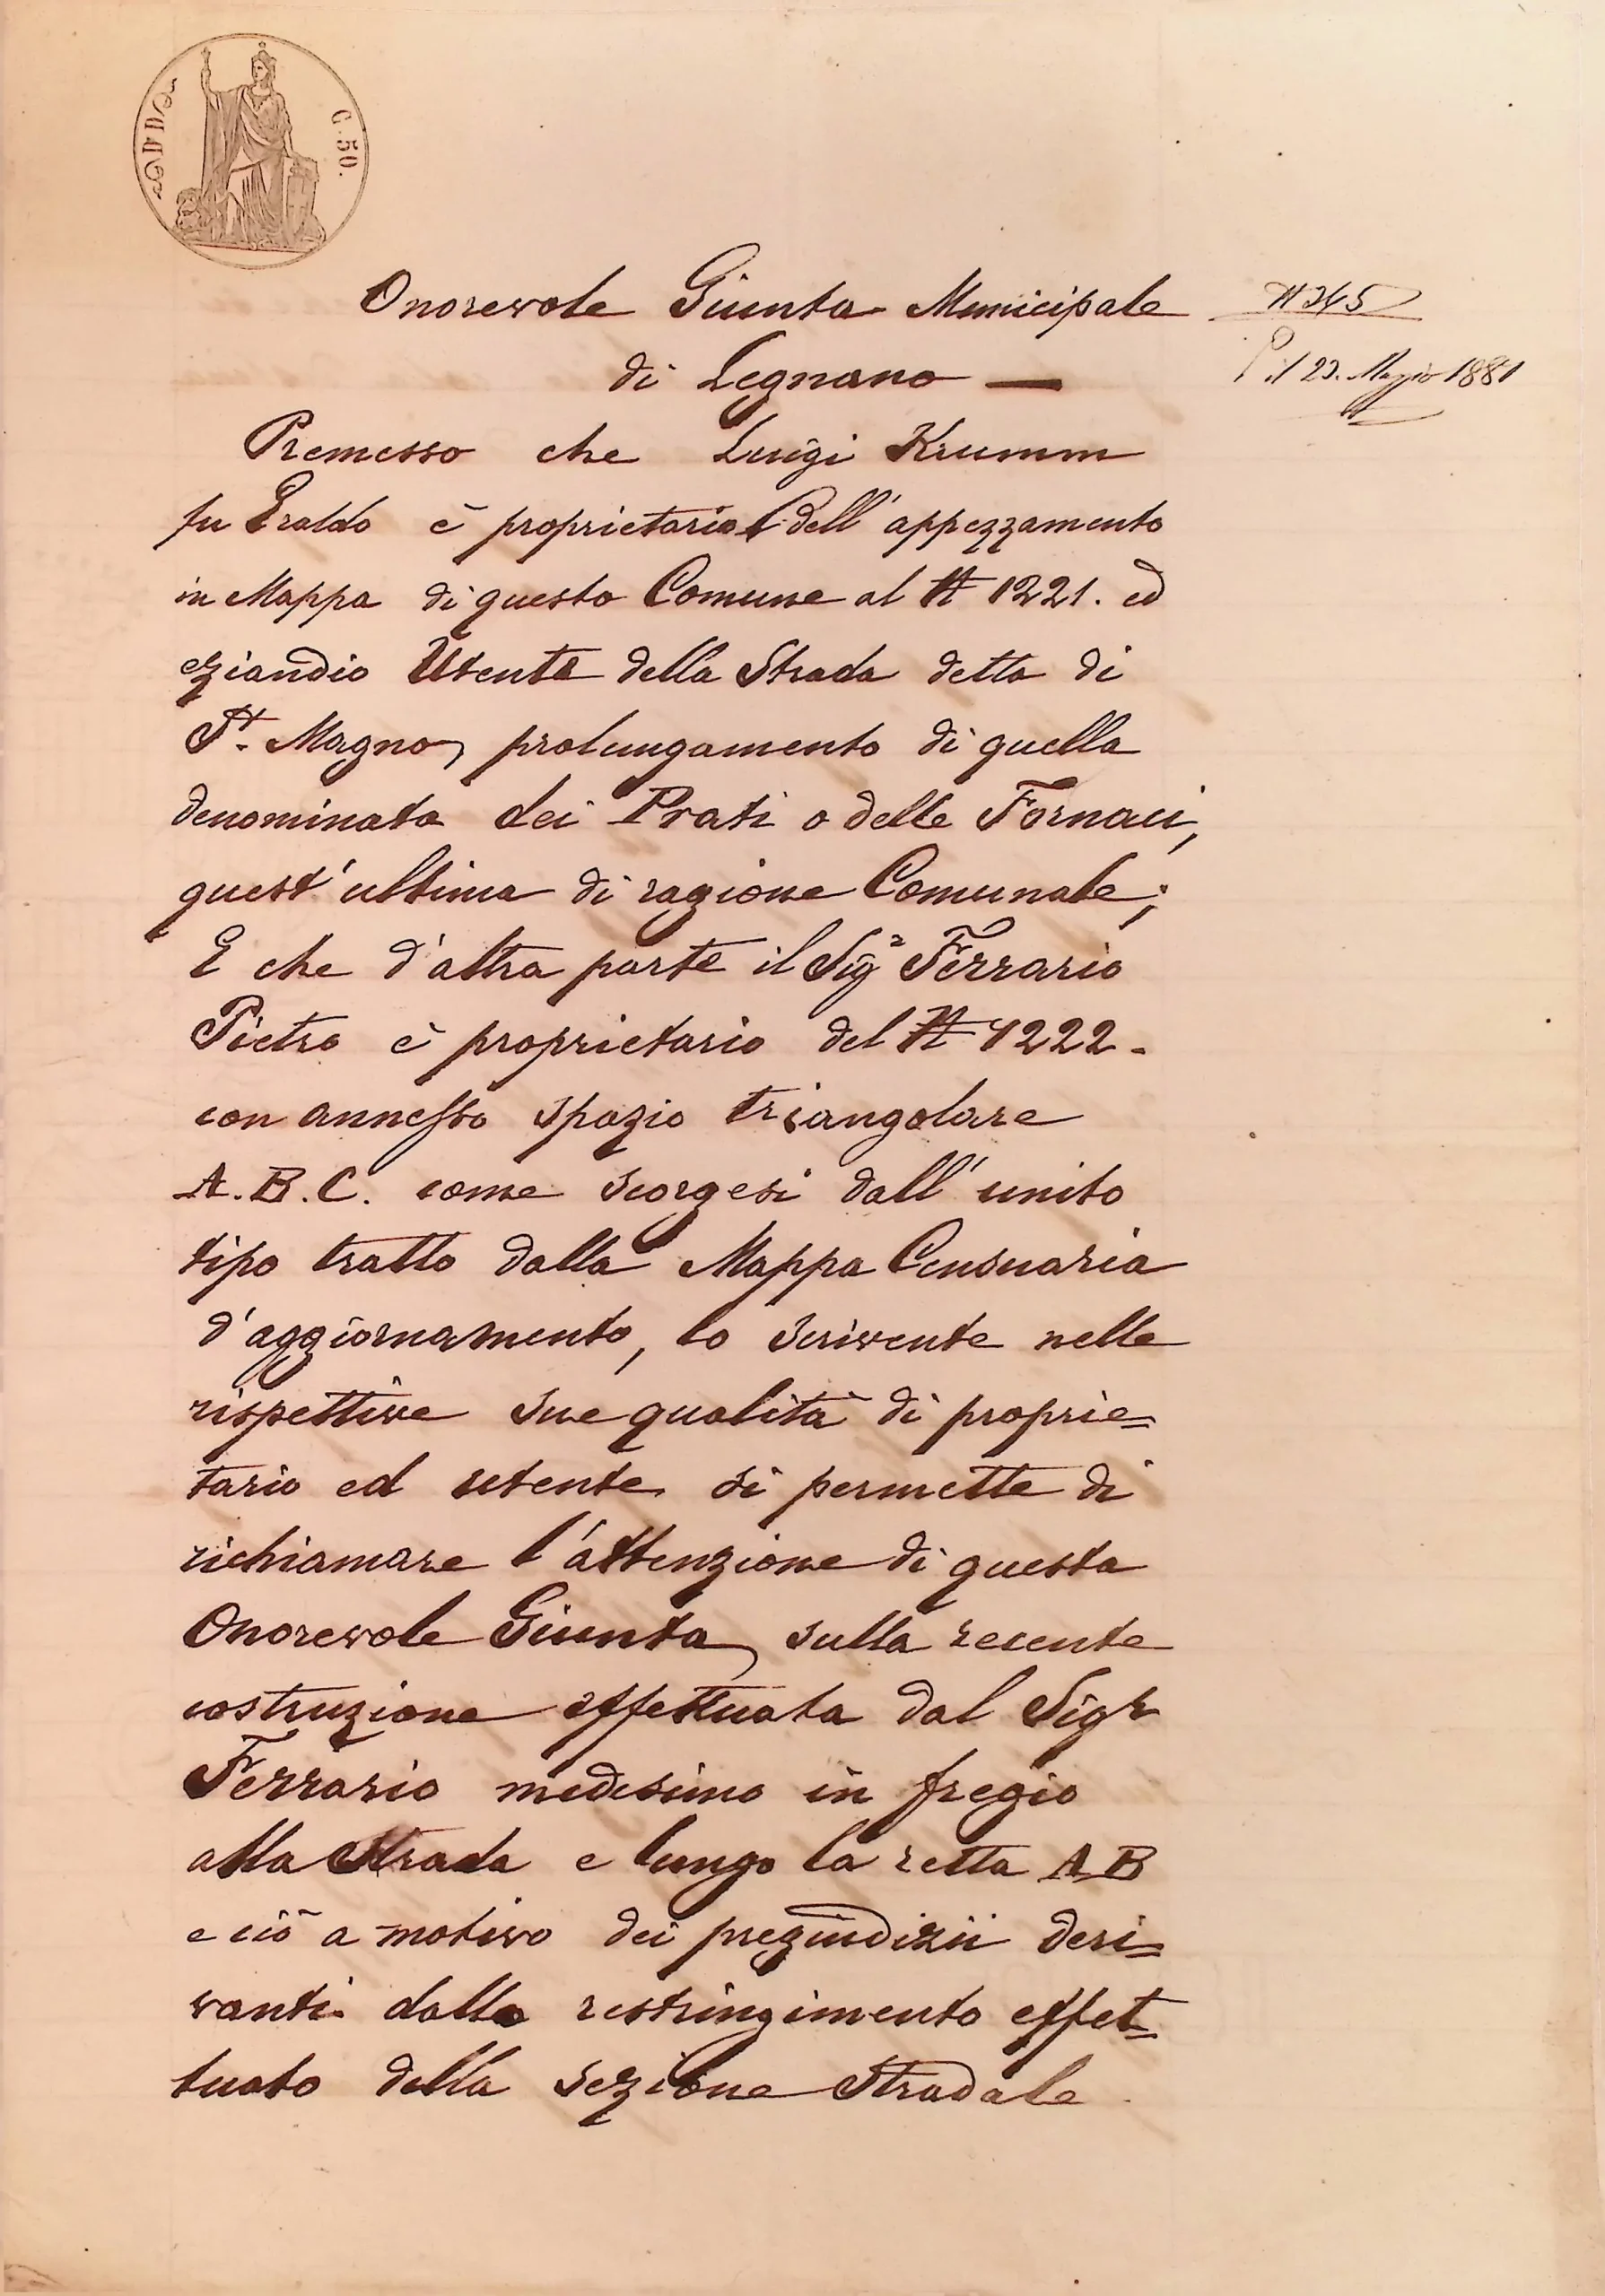 C. 50.
Onorevole Giunta Municipale
di Legnano —
N 345
P il 23. Maggio 1881
Premesso che Luigi Krumm
fu Eraldo è proprietario dell' appezzamento
in Mappa di questo Comune al N 1221. ed
eziandio Utente della Strada detta di
St. Magno, prolungamento di quella
denominata dei Prati o delle Fornaci,
quest' ultima di ragione Comunale;
E che d'altra parte il Sigr Ferrario
Pietro è proprietario del N 1222.
con annesso spazio triangolare
A. B. C. come scorgesi dall' unito
tipo tratto dalla Mappa Censuaria
d'aggiornamento, lo scrivente nelle
rispettive sue qualità di proprie=
tario ed utente si permette di
richiamare l'attenzione di questa
Onorevole Giunta, sulla recente
costruzione effettuata dal Sigr
Ferrario medesimo in fregio
alla Strada e lungo la retta A B
e ciò a motivo dei pregiudizii deri=
vanti dallo restringimento effet=
tuato della sezione Stradale